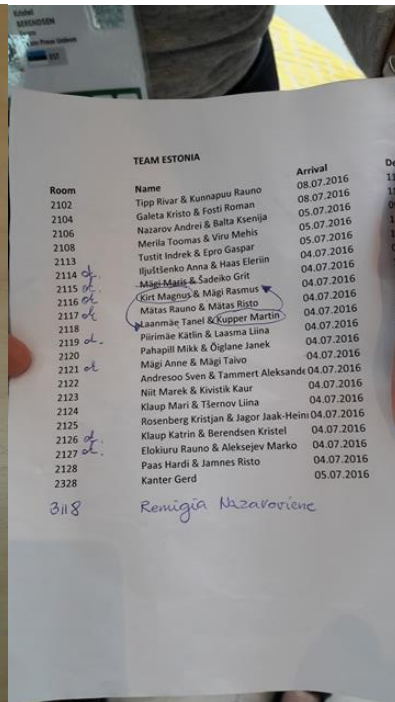 Kristel
BERENDSEN
EST
TEAM ESTONIA
Room Name Arrival
2102 Tipp Rivar & Kunnapuu Rauno 08.07.2016
2104 Galeta Kristo & Fosti Roman 08.07.2016
2106 Nazarov Andrei & Balta Ksenija 05.07.2016
2108 Merila Toomas & Viru Mehis 05.07.2016
2113 Tustit Indrek & Epro Gaspar 05.07.2016
2114 Iljuštšenko Anna & Haas Eleriin 04.07.2016
2115 Mägi Maris & Šadeiko Grit 04.07.2016
2116 Kirt Magnus & Mägi Rasmus 04.07.2016
2117 Mätas Rauno & Mätas Risto 04.07.2016
2118 Laanmäe Tanel & Kupper Martin 04.07.2016
2119 Piirimäe Kätlin & Laasma Liina 04.07.2016
2120 Pahapill Mikk & Õiglane Janek 04.07.2016
2121 Mägi Anne & Mägi Taivo 04.07.2016
2122 Andresoo Sven & Tammert Aleksande 04.07.2016
2123 Niit Marek & Kivistik Kaur 04.07.2016
2124 Klaup Mari & Tšernov Liina 04.07.2016
2125 Rosenberg Kristjan & Jagor Jaak-Hein 04.07.2016
2126 Klaup Katrin & Berendsen Kristel 04.07.2016
2127 Elokiuru Rauno & Aleksejev Marko 04.07.2016
2128 Paas Hardi & Jamnes Risto 04.07.2016
2328 Kanter Gerd 05.07.2016
3118 Remigia Nazaroviene